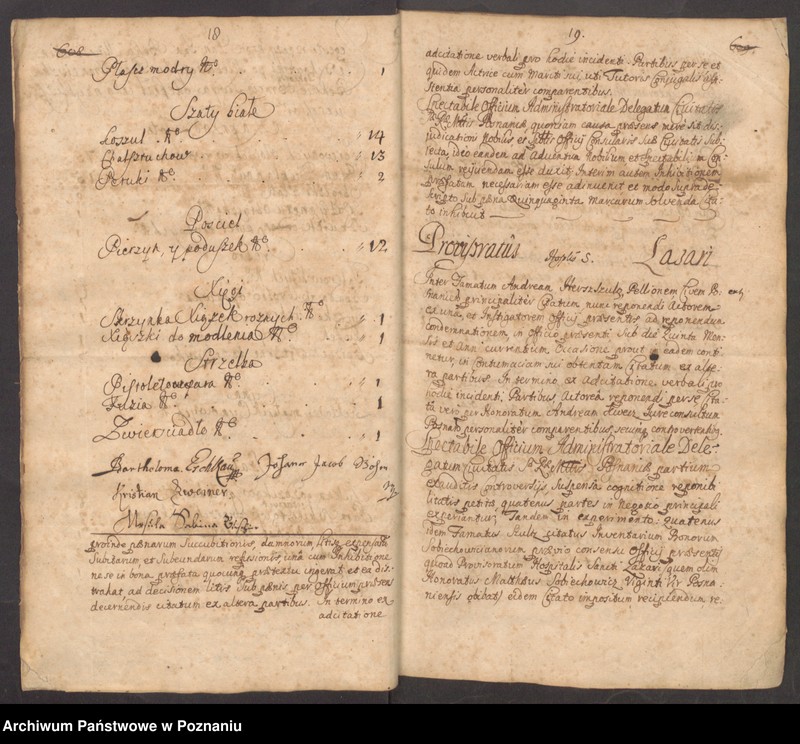 608
18
Płaszcz modry No. 1
Szaty białe
Koszul No 14
Halsztuchow 13
Peruki No. 2
Posciel
Pierzyn, y poduszek No 12
Xięgi
Skrzynka Xiązek roznych No 1
Xięgszki do modlenia No 1
Strzelba
Pistoletow para No 1
Fuzia No. 1
Zwierciadło No 1
Bartholoma Johann Jacob
Kristian
Sabina
proinde pœnarum succubitionis, damnorum litis expensarum
Subindarum et Subeundarum refusionis, una cum Inhibitione
ne se in bona præfata quocunq prætextu ingerat et ea dis-
trahat, ad decisionem litis sub pœnis per Officium præsens
decernendis citatum ex altera partibus. In termino ex
adcitatione
19.
609
adcitatione verbali pro hodie incidenti. Partibus per se et
quidem Actrice cum Mariti sui uti Tutoris Conjugalis as-
sistentia personaliter comparentibus.
Spectabile Officium Administratoriale Delegatum Civitatis
S. R. Mttis Posnaniæ, quoniam causa præsens mere sit dis-
judicationi Nobilis et Officij Consularis hujus Civitatis sub-
jecta, ideo eandem ad Advitatum Nobilium et Spectabilium Con-
sulum rejiciendam esse duxit, Interim autem Inhibitionem
præfatam necessariam esse adinvenit et modo supra de-
scripto sub pœna Quinquaginta Marcarum solvenda Ci-
to inhibuit
Provisoratus Hoplis S. Lazari
Inter Famatum Andream Herszulc Pellionem Civem Po-
snaniæ principaliter Citatum nunc reponendi Actorem
ex una, et Instigatorem Officij præsentis ad reponendum
condemnationem, in Officio præsenti sub die Quinta Men-
sis et Anni currentium, Occasione prout in eadem conti-
netur, in Contumaciam sui obtentam Citatum ex alte-
ra partibus. In termino ex adcitatione verbali pro
hodie incidenti. Partibus, Actorea reponendi per se Cita-
ta vero per Honoratum Andream Jure consultum
Posnan personaliter comparentibus, secumq controvertentibus.
Spectabile Officium Administratoriale Dele-
gatum Civitatis S. R. Mttis Posnaniæ partium
exauditis controversijs, suspensa cognitione reponibi-
litatis petita, quatenus partes in Negotio principali
experiantur. Tandem in experimento quatenus
idem Famatus Szulc citatus Inventarium Bonorum
Sobiechowicianorum prævio consensu Officij præsentis
quoad Provisoratum Hospitalis Sancti Lazari quem olim
Honoratus Matthæus Sobiechowicz Viginti Vir Posna-
niensis obibat, eidem Citato impositum recipiendum re-
Archiwum Państwowe w Poznaniu